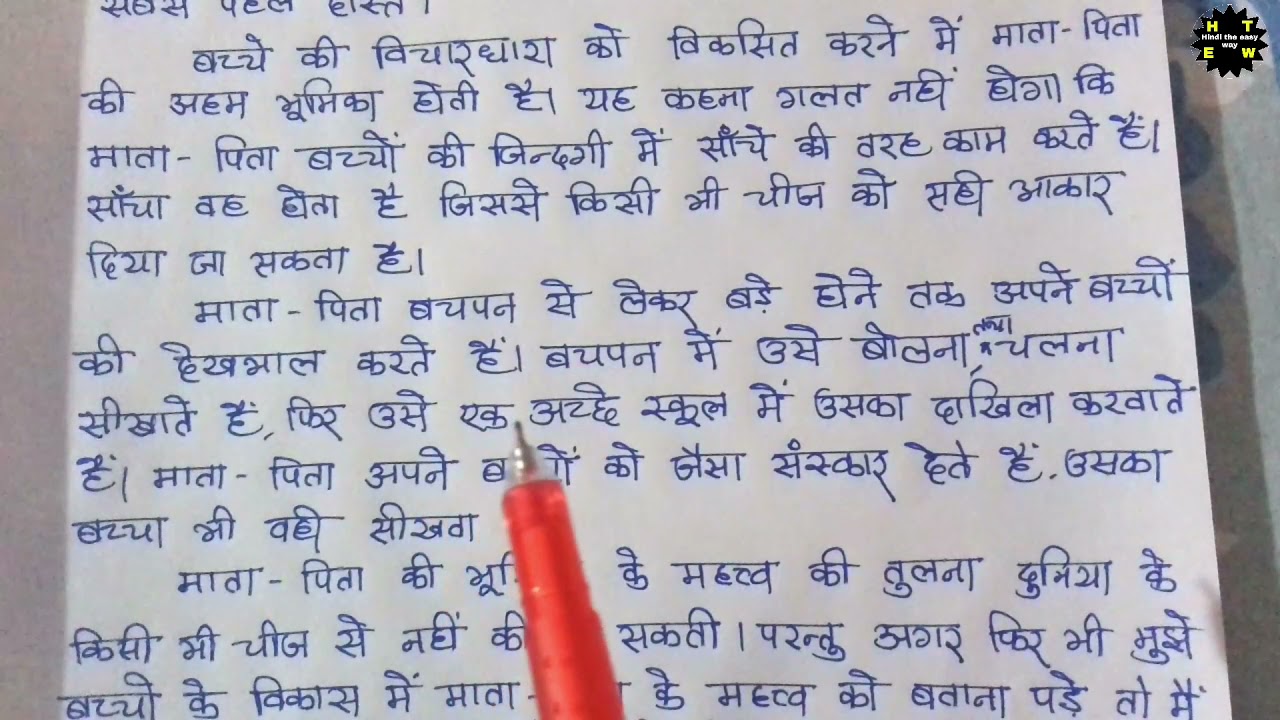 सबसे पहले होते।
बच्चे की विचारधारा को विकसित करने में माता-पिता
की अहम भूमिका होती है। यह कहना गलत नहीं होगा कि
माता-पिता बच्चों की जिन्दगी में साँचे की तरह काम करते हैं।
साँचा वह होता है जिससे किसी भी चीज को सही आकार
दिया जा सकता है।
माता-पिता बचपन से लेकर बड़े होने तक अपने बच्चों
की देखभाल करते हैं। बचपन में उसे बोलना, तथा चलना
सीखाते हैं, फिर उसे एक अच्छे स्कूल में उसका दाखिला करवाते
हैं। माता-पिता अपने को जैसा संस्कार देते हैं. उसका
बच्चा भी वही सीखग
माता-पिता की के महत्त्व की तुलना दुनिया के
किसी भी चीज से नहीं की सकती। परन्तु अगर फिर भी मुझे
बच्चो के विकास में माता- के महत्त्व को बताना पड़े तो मैं
H T
Hindi the easy
way
E W